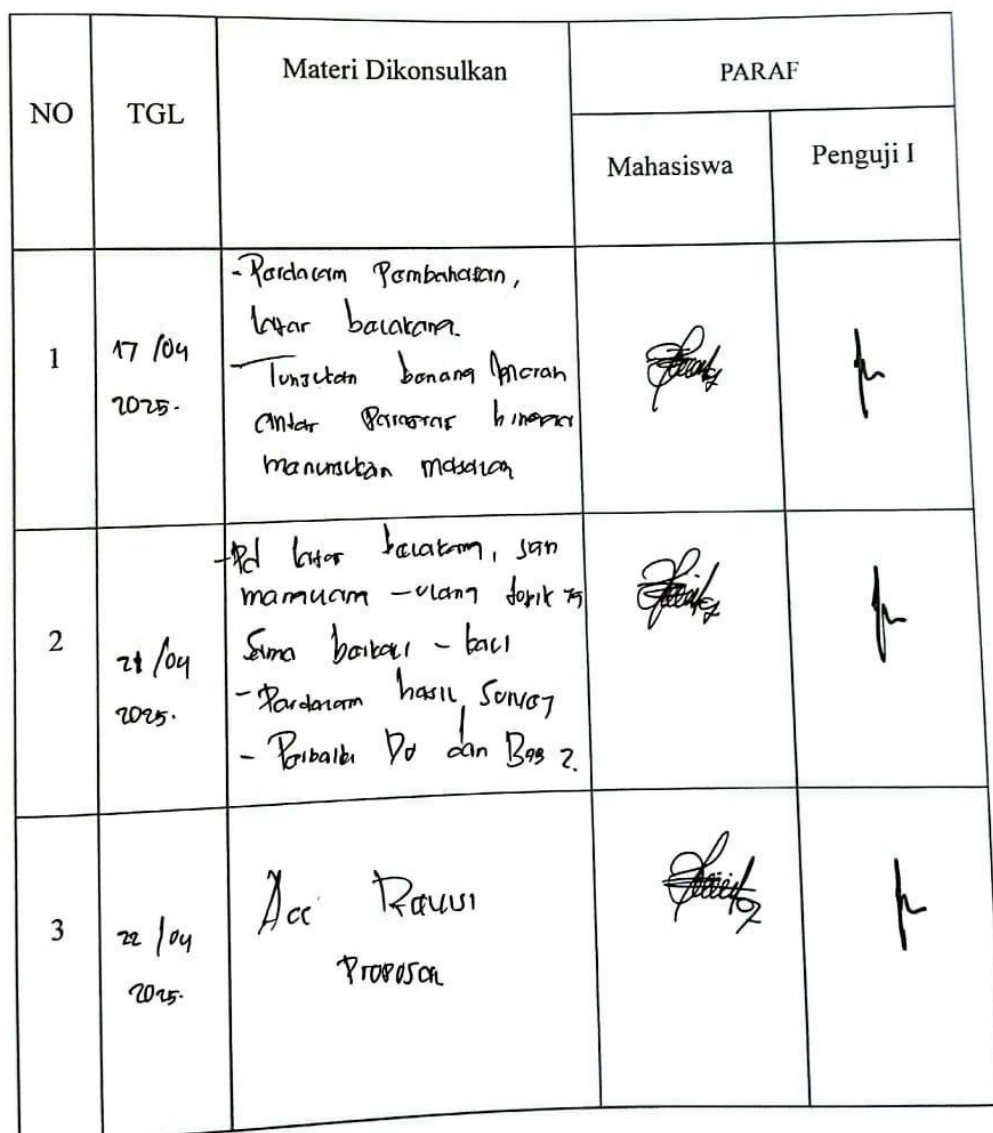 NO
TGL
Materi Dikonsulkan
PARAF
Mahasiswa
Penguji I
1
17/04
2025.
- Perdalam Pembahasan,
latar belakang.
- Tunjukan benang merah
antar Paragraf hingga
manunjukan masalah
2
21/04
2025.
- Pd latar belakang, jgn
mengulang - ulang topik yg
sama berkali - kali
- Perdalam hasil survey
- Perbaiki DO dan Bab 2.
3
22/04
2025.
Acc Revisi
Proposal